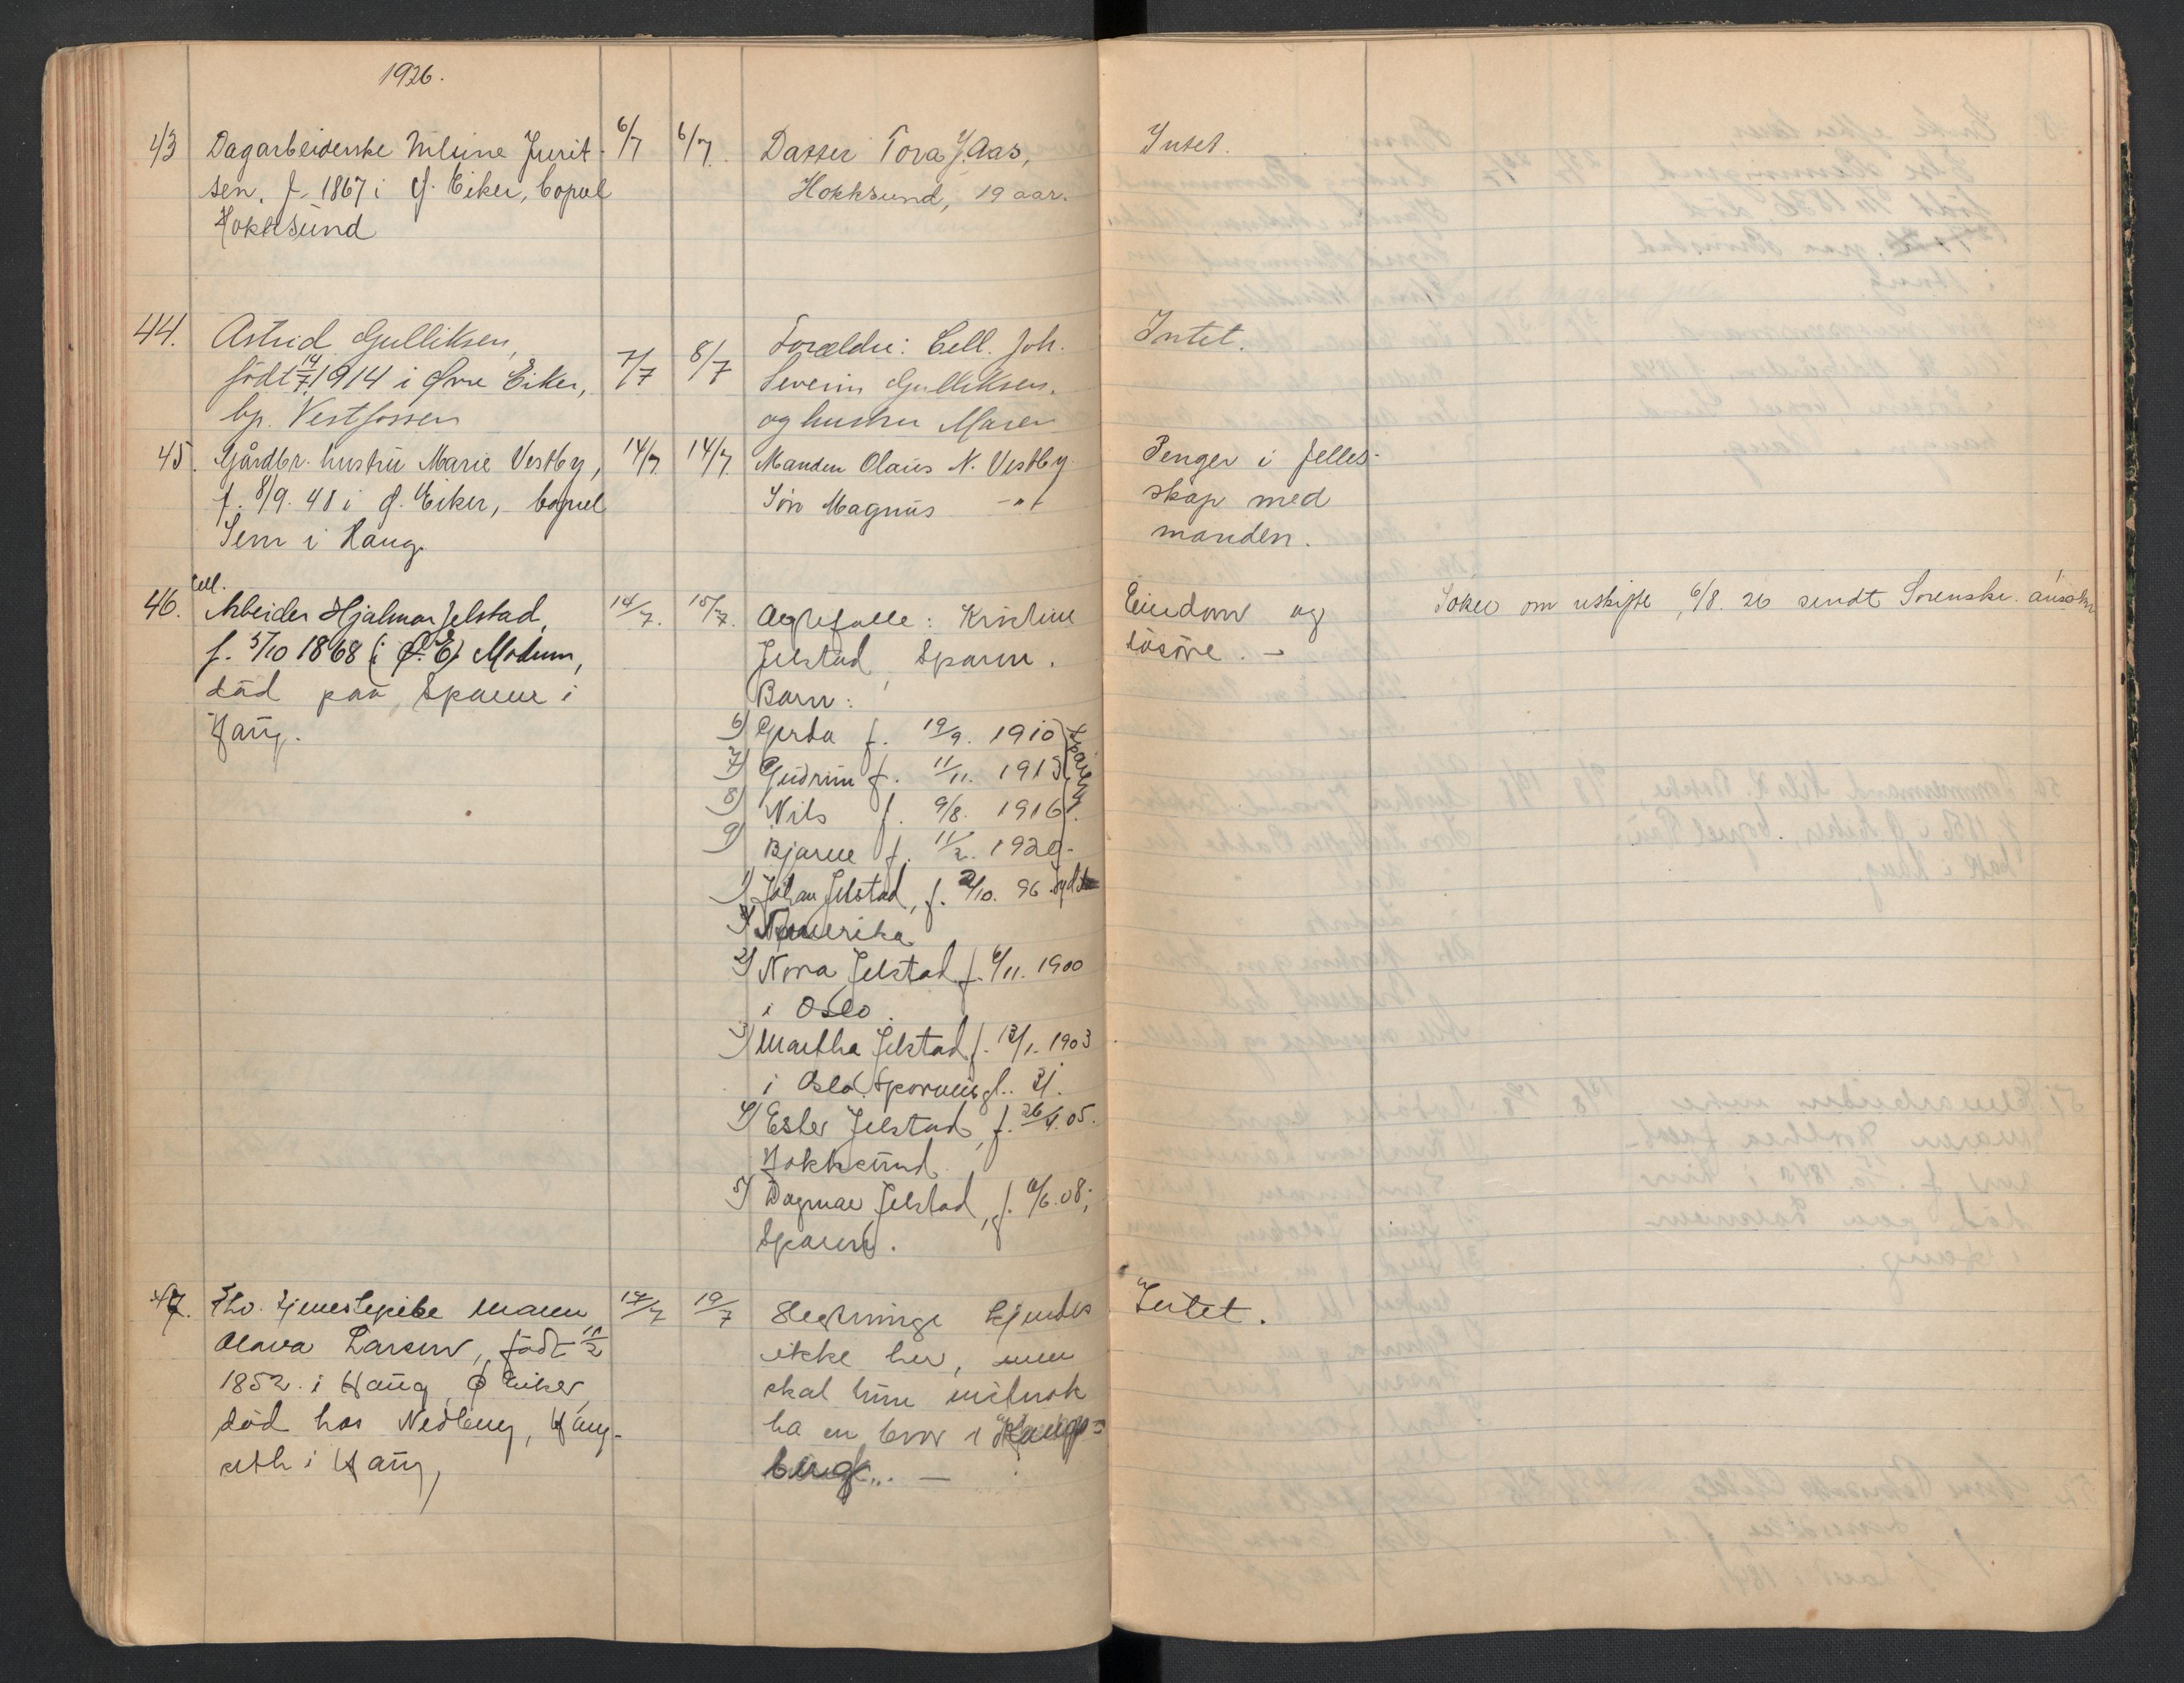 1926.
43 Dagarbeiderske Juirit-
sen. f. 1867 i Ø. Eiker, bopæl
Hokksund
6/7 6/7.
Datter Tora J. Aas,
Hokksund, 19 aar.
Intet.
44. Astrid Gulliksen,
født 14/7 1914 i Øvre Eiker,
bp. Vestfossen
7/7 8/7
Forældre: Cell. Joh.
Severin Gulliksen.
og hustru Maren
Intet.
45. Gårdbr. hustru Marie Vestby,
f. 8/9. 48 i Ø. Eiker, bopæl
Sem i Haug.
14/7 14/7
Manden Olaus N. Vestby
Søn Magnus -"-
Penger i felles-
skap med
manden.
46. Cell.
Arbeider Hjalmar Jelstad,
f. 5/10 1868 (i Ø. E) Modum,
død paa Sparne i
Haug.
14/7. 15/7.
Ægtefælle: Kristine
Jelstad Sparne.
Barn:
6) Gerda f. 19/9. 1910
7) Gudrun f. 11/11. 1913
8) Nils f. 9/8. 1916
9) Bjarne f. 11/2. 1920.
1) Johan Jelstad, f. 2/10. 96
Amerika
2) Nora Jelstad f. 6/11. 1900
i Oslo.
3) Martha Jelstad f. 13/1. 1903
i Oslo. 31.
4) Ester Jelstad, f. 26/4. 05.
Hokksund
5) Dagmar Jelstad, f. 6/6. 08;
Sparne.
Eiendom og
løsøre. -
Søker om uskifte, 6/8. 26 sendt Sorenskr. ansøkn
47. Fhv. tjenestepike Maren
Olava Larsen, født 11/2
1852. i Haug, Ø Eiker,
død hos Nedberg, Haug-
seth i Haug,
17/7 19/7
Slegtninge kjendes
ikke her, men
skal hun
ha en bror i
berg. -
Intet.